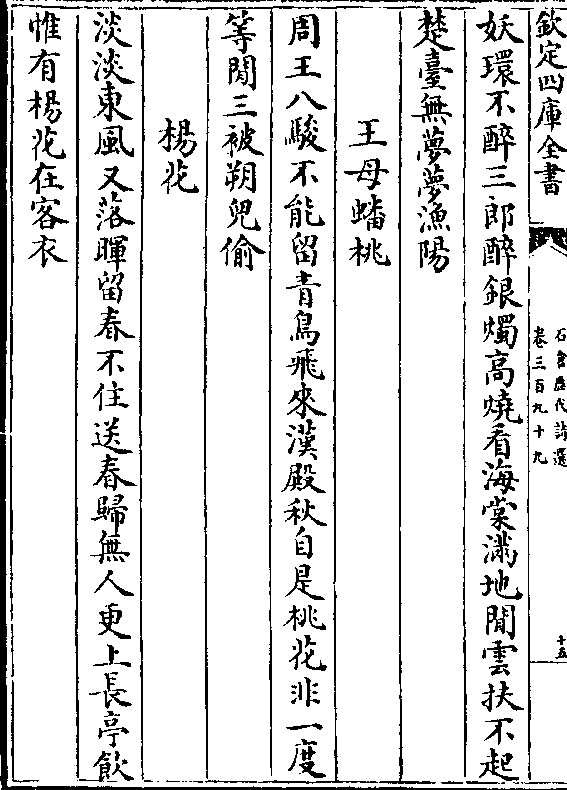 欽定四庫全書
石倉歷代詩選
卷三百九十九
十五
妖環不醉三郎醉銀燭高燒看海棠滿地閒雲扶不起
楚臺無夢夢漁陽
王母蟠桃
周王八駿不能留青鳥飛來漢殿秋自是桃花非一度
等閒三被朔兒偷
楊花
淡淡東風又落暉留春不住送春歸無人更上長亭飲
惟有楊花在客衣